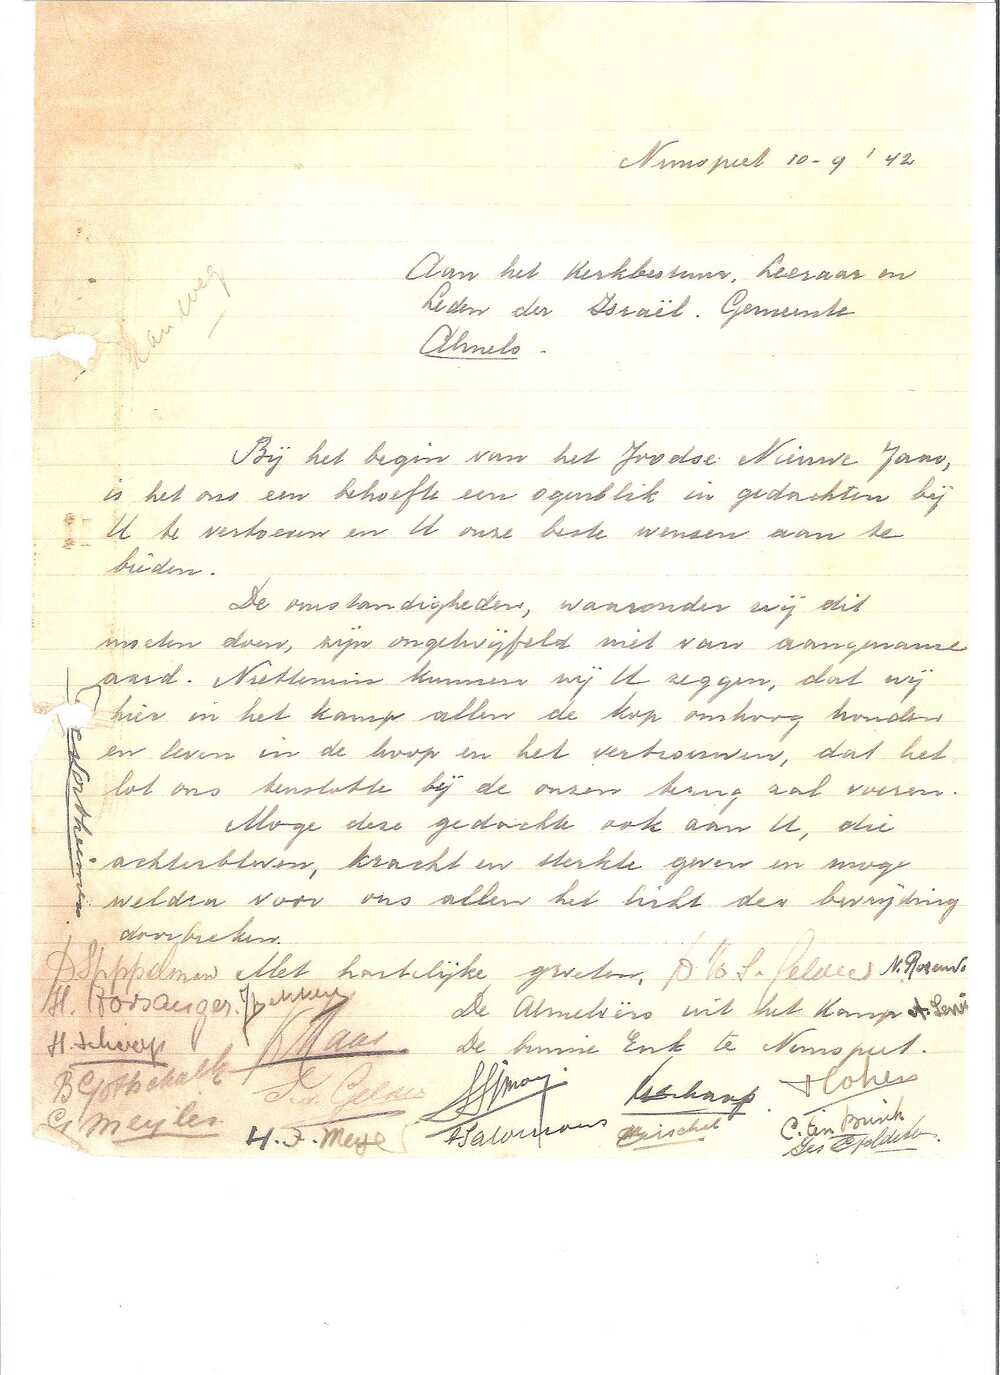 Nunspeet 10-9 '42
Aan het Kerkbestuur, Leeraar en
Leden der Israël. Gemeente
Almelo.
Bij het begin van het Joodse Nieuwe Jaar,
is het ons een behoefte een ogenblik in gedachten bij
U te vertoeven en U onze beste wensen aan te
bieden.
De omstandigheden, waaronder wij dit
moeten doen, zijn ongetwijfeld niet van aangename
aard. Niettemin kunnen wij U zeggen, dat wij
hier in het kamp allen de kop omhoog houden
en leven in de hoop en het vertrouwen, dat het
lot ons tenslotte bij de onzen terug zal voeren.
Moge deze gedachte ook aan U, die
achterbleven, kracht en sterkte geven en moge
weldra voor ons allen het licht der bevrijding
doorbreken.
Met hartelijke groeten,
De Almeloërs uit het Kamp
De bruine Enk te Nunspeet.
H. Borsanger.
B Gotschalk
G Meyler
K Maas
S. v. Gelder
H. J. Meye
Salomons
Hirschel
Cohen
C. ten Brink
N. Rosen
A. Levi